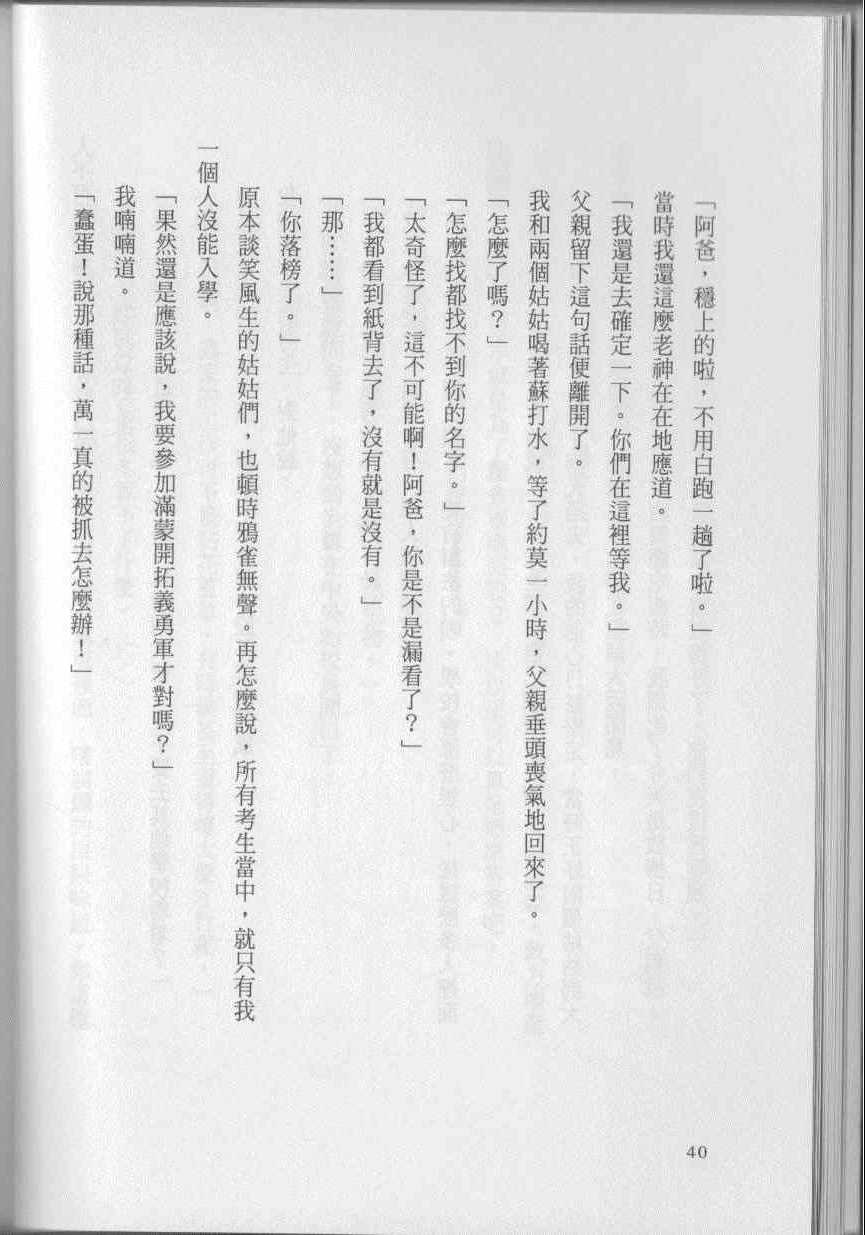 「阿爸，穩上的啦，不用白跑一趟了啦。」
當時我還這麼老神在在地應道。
「我還是去確定一下。你們在這裡等我。」
父親留下這句話便離開了。
我和兩個姑姑喝著蘇打水，等了約莫一小時，父親垂頭喪氣地回來了。
「怎麼了嗎？」
「怎麼找都找不到你的名字。」
「太奇怪了，這不可能啊！阿爸，你是不是漏看了？」
「我都看到紙背去了，沒有就是沒有。」
「那……」
「你落榜了。」
原本談笑風生的姑姑們，也頓時鴉雀無聲。再怎麼說，所有考生當中，就只有我
一個人沒能入學。
「果然還是應該說，我要參加滿蒙開拓義勇軍才對嗎？」
我喃喃道。
「蠢蛋！說那種話，萬一真的被抓去怎麼辦！」
40